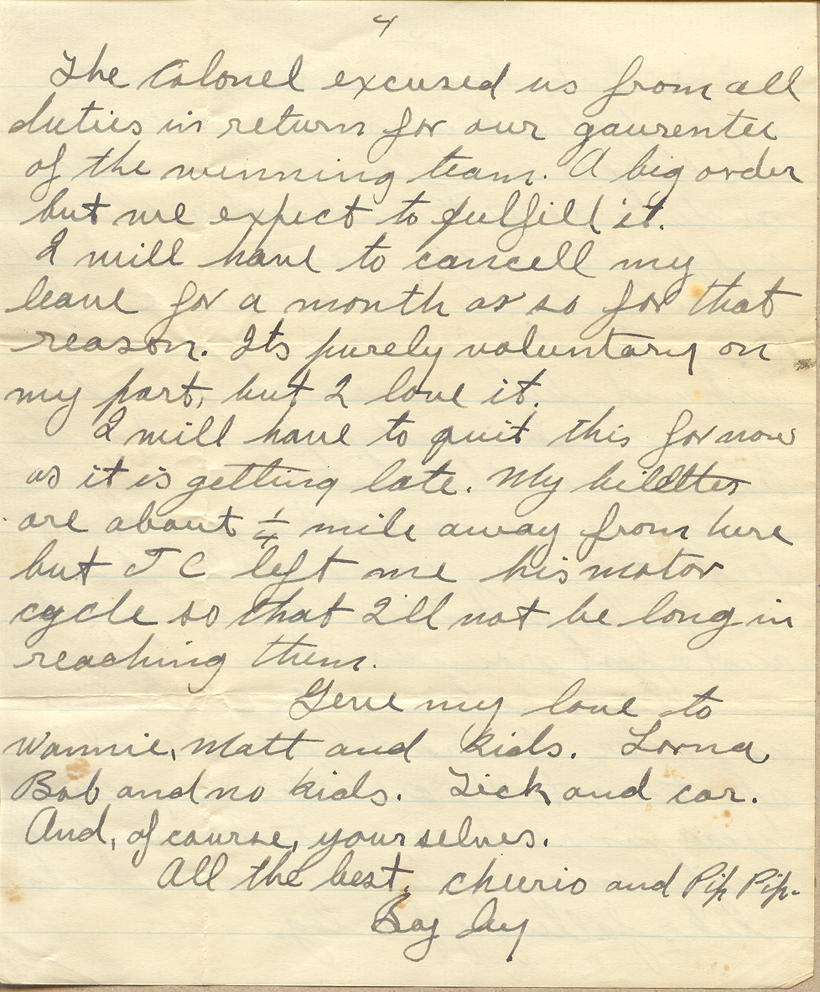 4
The Colonel excused us from all
duties in return for our gaurentee
of the winning team. A big order
but we expect to fulfill it.
I will have to cancell my
leave for a month or so for that
reason. Its purely voluntary on
my part, but I love it.
I will have to quit this for now
as it is getting late. My billetts
are about 1/4 mile away from here
but J C left me his motor
cycle so that I'll not be long in
reaching them.
Give my love to
Wannie, Matt and kids. Lorna,
Bob and no kids. Tick and car.
And, of course, yourselves.
All the best, cheerio and Pip Pip.